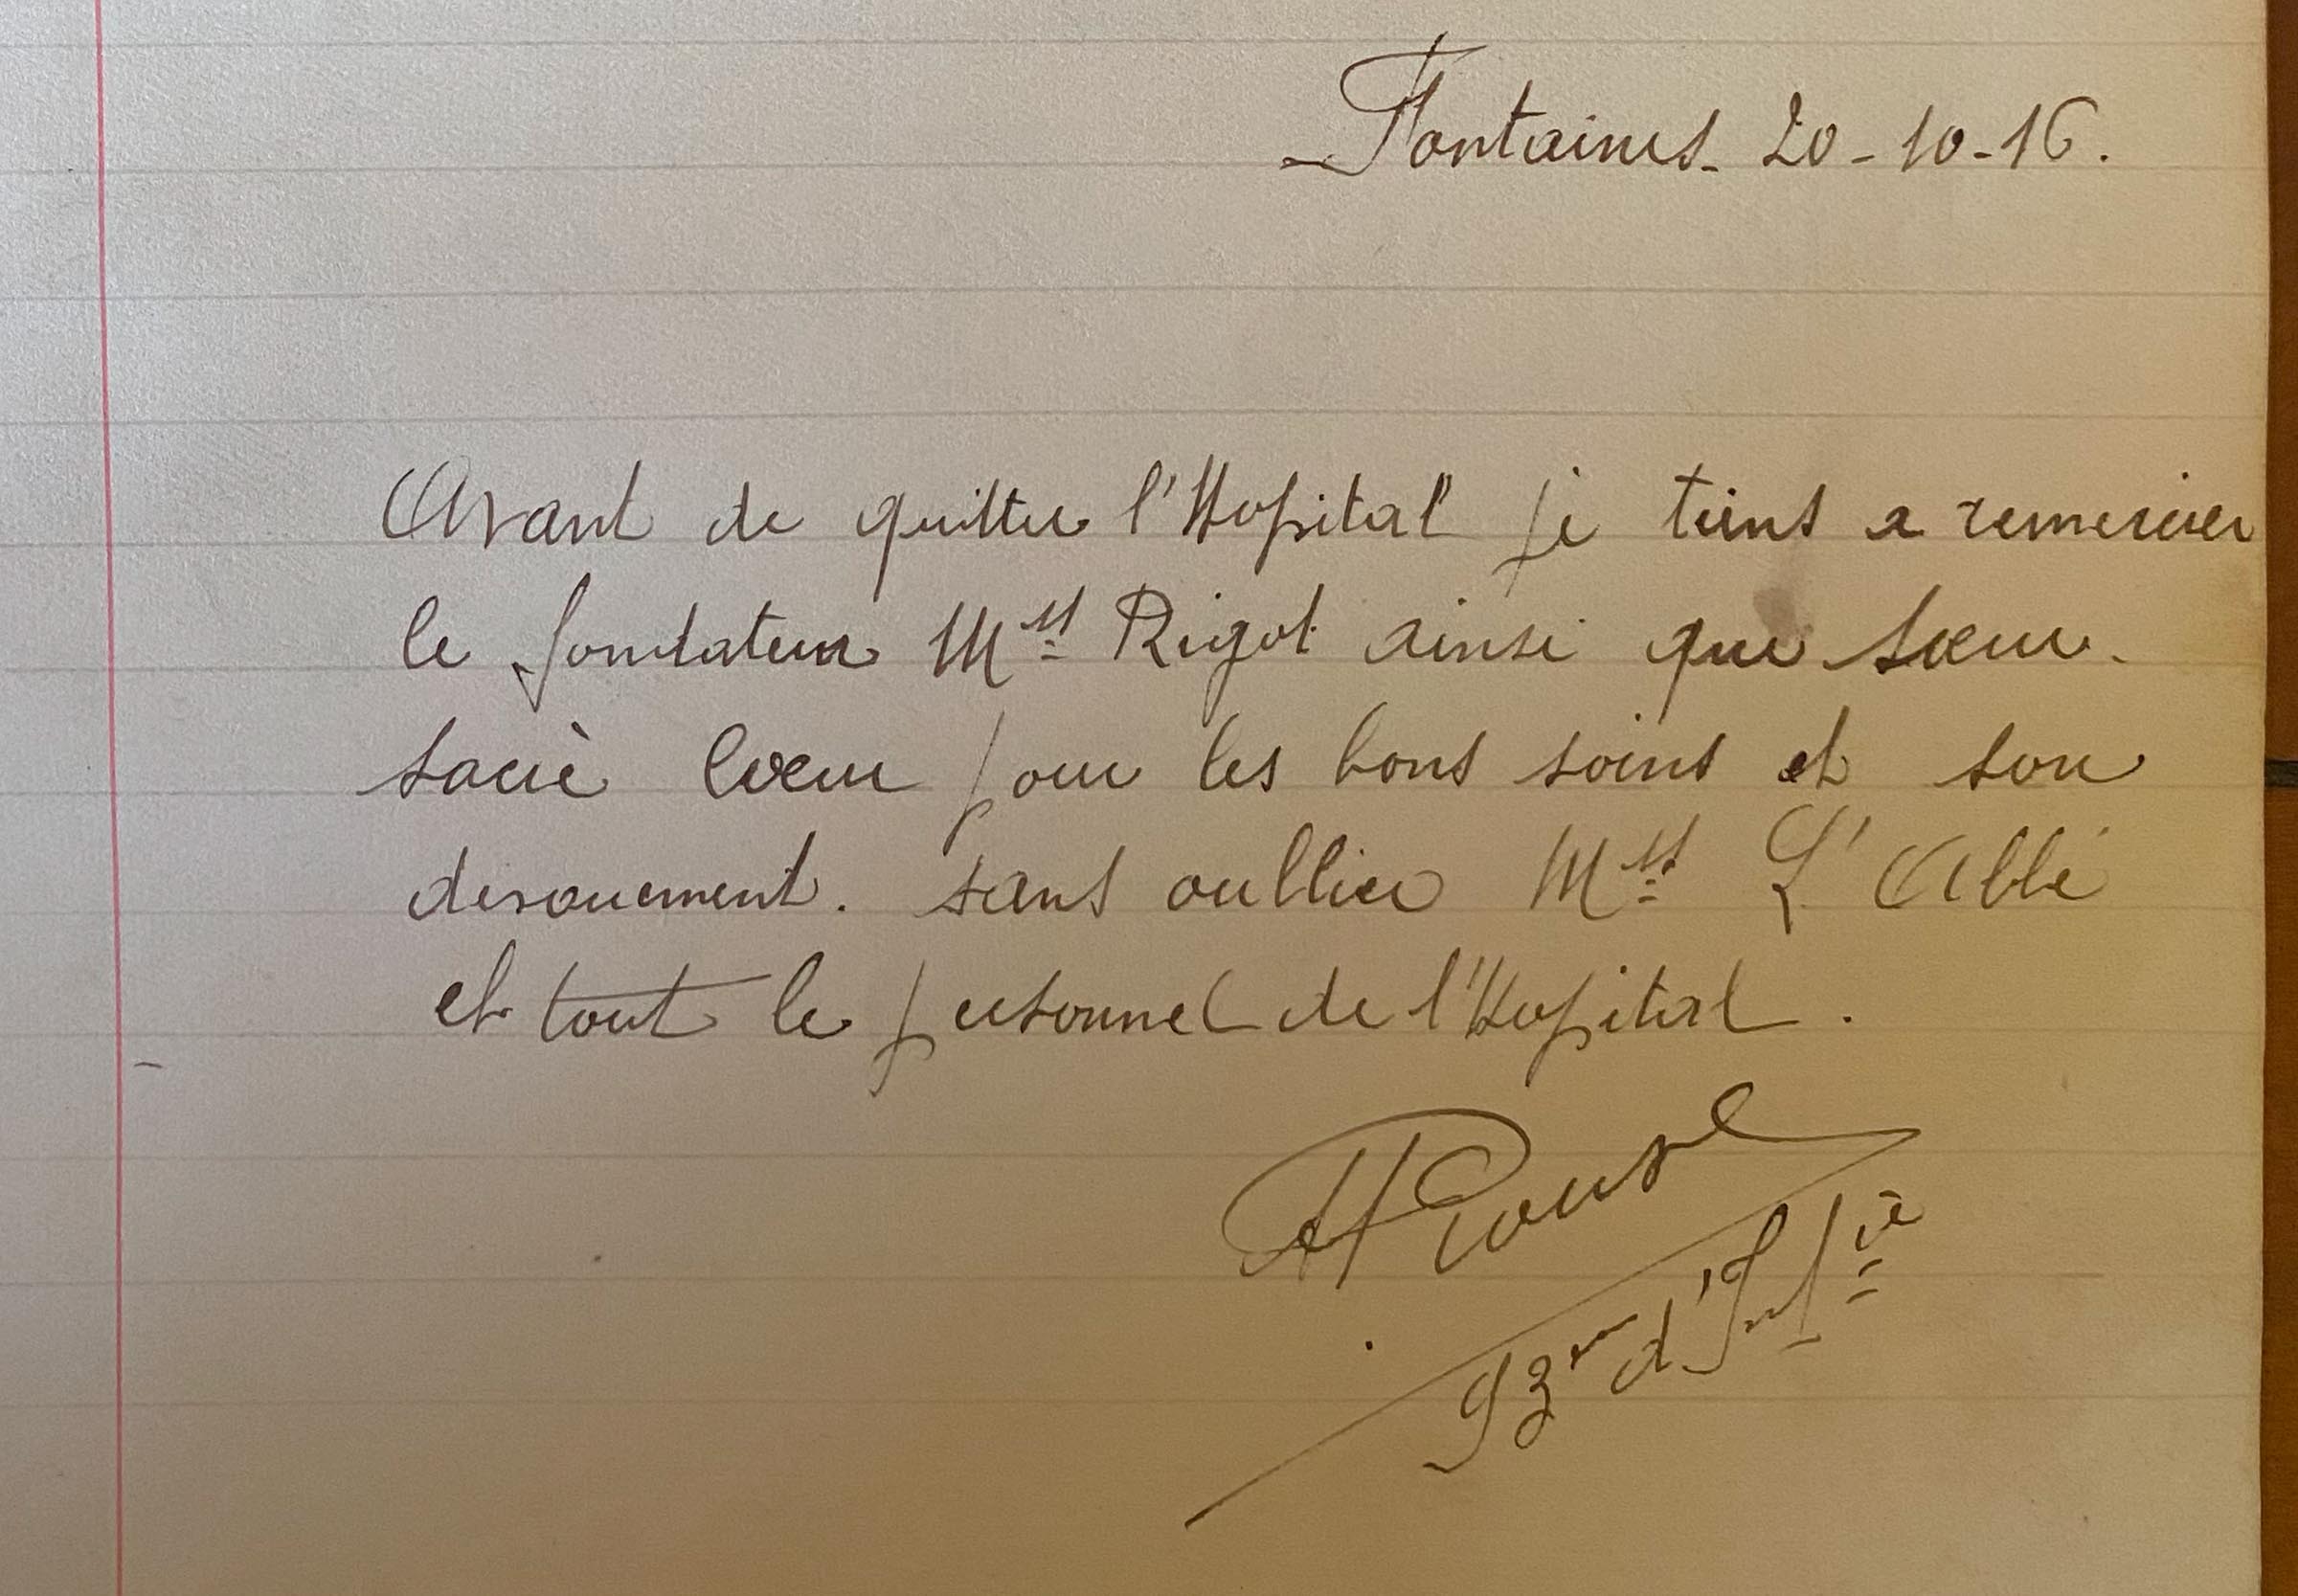 Fontaines. 20-10-16.
Avant de quitter l'Hopital je tiens a remercier
le fondateur Mr Rigot ainsi que Sœur
sacré Cœur pour les bons soins et son
devouement. sans oublier Mr L'Abbé
et tout le personnel de l'Hopital.
93em d'Inf ie